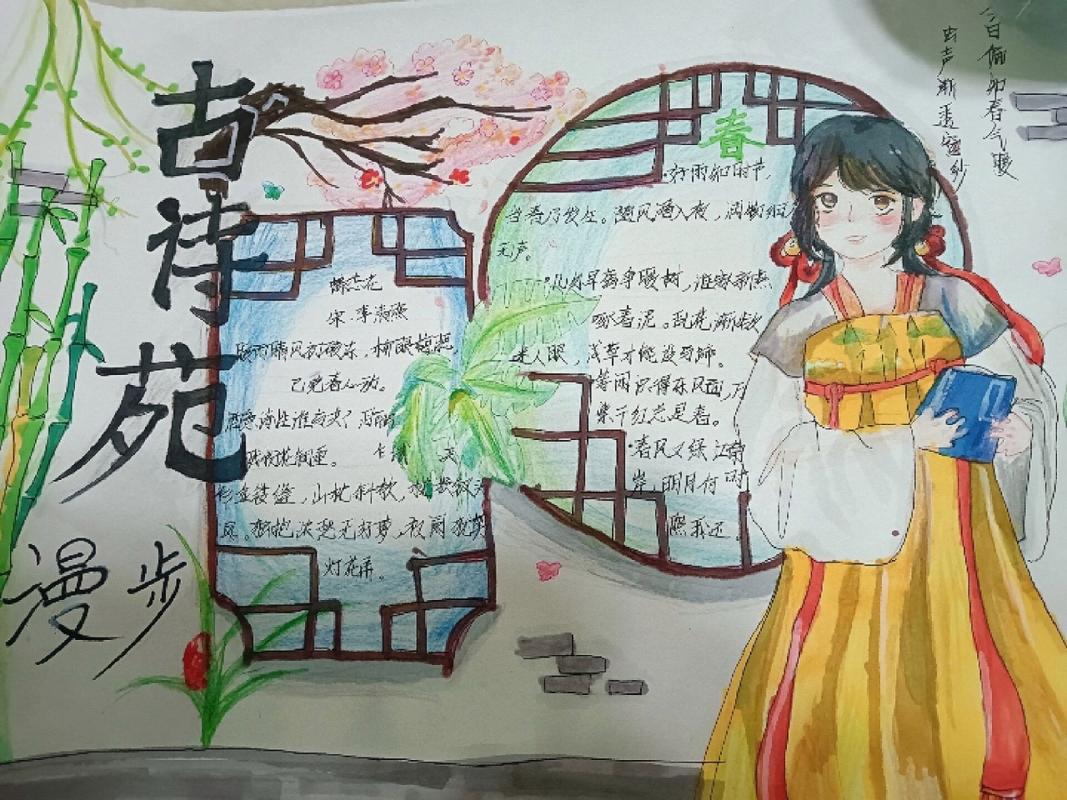 古诗苑
漫步
蝶恋花
宋 李清照
暖雨晴风初破冻,柳眼梅腮,
已觉春心动。
酒意诗性谁与共?泪融
残粉花钿重。
衫金缕缝,山枕斜欹,枕损钗头
凤。独抱浓愁无好梦,夜阑犹剪
灯花弄。
春
·好雨知时节,
当春乃发生。随风潜入夜,润物细
无声。
·几处早莺争暖树,谁家新燕
啄春泥。乱花渐欲
迷人眼,浅草才能没马蹄。
·等闲识得东风面,万
紫千红总是春。
·春风又绿江南
岸,明月何时
照我还。
今日偏知春气暖
虫声新透窗纱